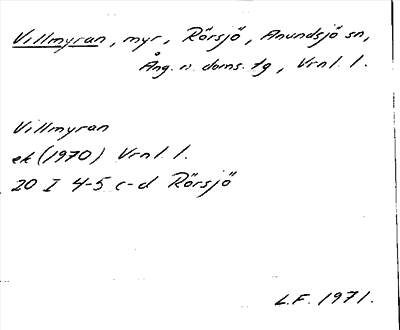 Villmyran, myr, Rörsjö, Anundsjö sn,
Ång. n. doms. tg, Vrnl. l.
Villmyran
ek (1970) Vrnl. l.
20 I 4-5 c-d Rörsjö
L.F. 1971.